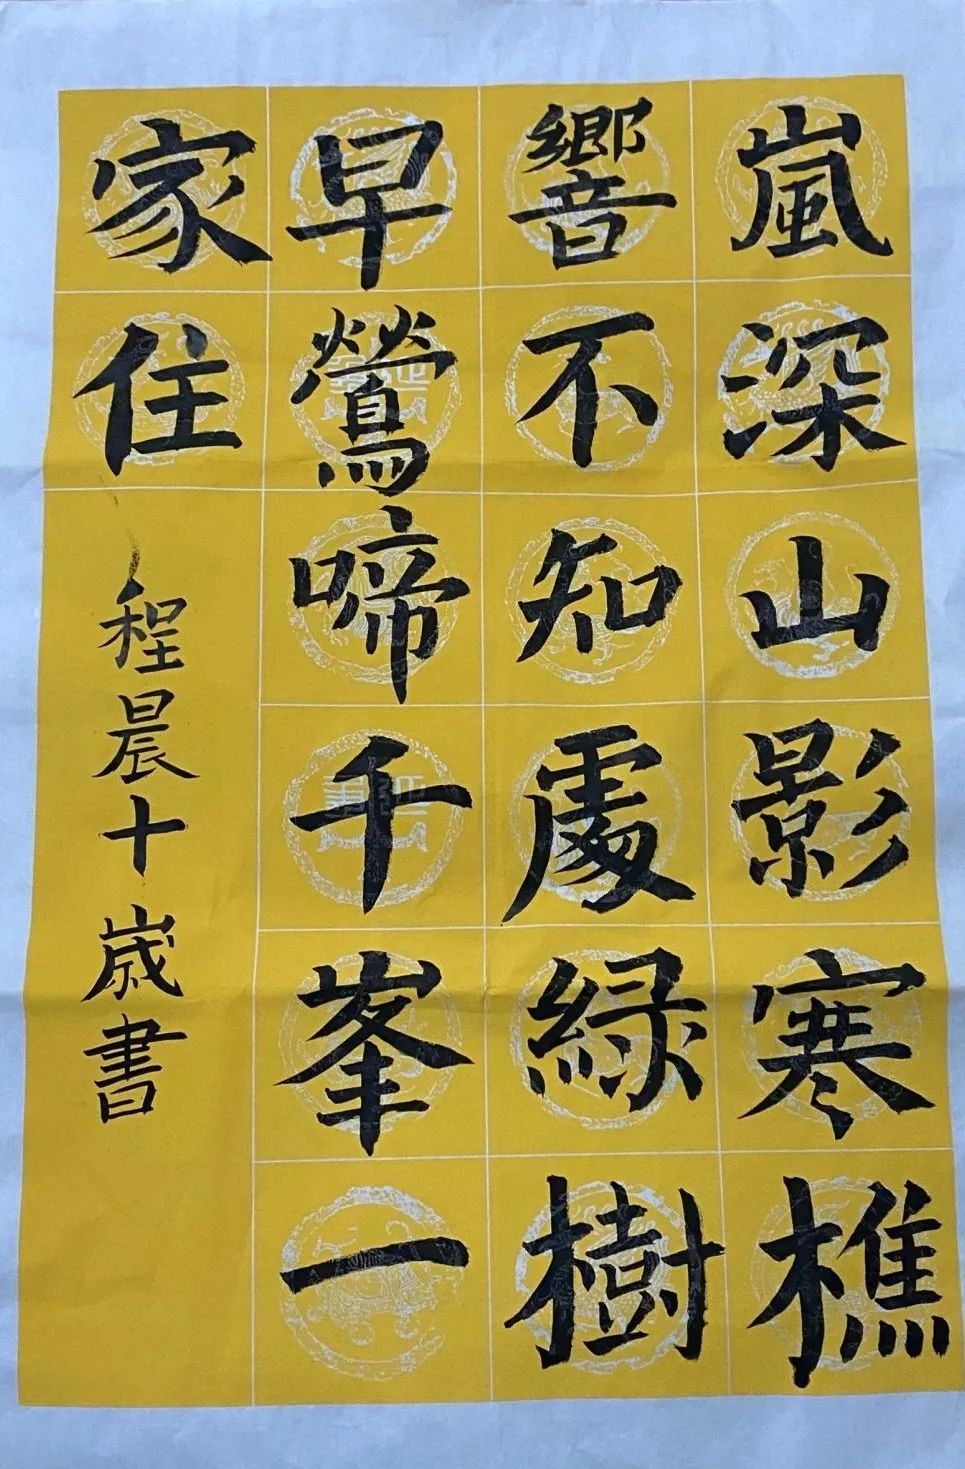 嵐深山影寒樵
響不知處綠樹
早鶯啼千峯一
家住
程晨十歲書